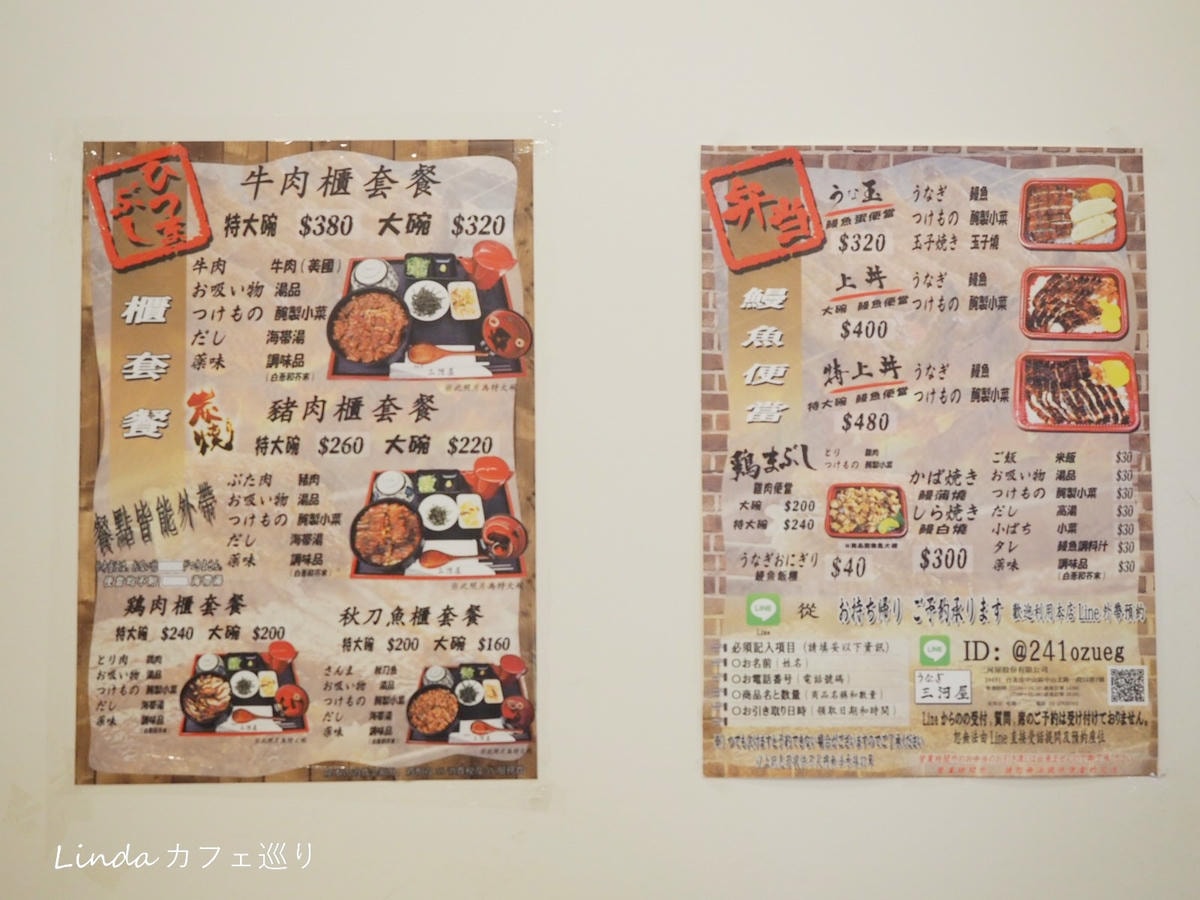 ひつまぶし
牛肉櫃套餐
特大碗 $380 大碗 $320
牛肉 牛肉(美國)
お吸い物 湯品
つけもの 醃製小菜
だし 海帶湯
薬味 調味品
(白蔥和芥末)
※此照片為特大碗
櫃套餐
炭燒
豬肉櫃套餐
特大碗 $260 大碗 $220
ぶた肉 豬肉
お吸い物 湯品
つけもの 醃製小菜
だし 海帶湯
薬味 調味品
(白蔥和芥末)
※此照片為特大碗
餐點皆能外帶
鶏肉櫃套餐
特大碗 $240 大碗 $200
とり肉 雞肉
お吸い物 湯品
つけもの 醃製小菜
だし 海帶湯
薬味 調味品
秋刀魚櫃套餐
特大碗 $200 大碗 $160
さんま 秋刀魚
お吸い物 湯品
つけもの 醃製小菜
だし 海帶湯
薬味 調味品
弁当
鰻魚便當
うな玉
$320
うなぎ 鰻魚
つけもの 醃製小菜
玉子焼き 玉子燒
上丼
大碗 鰻魚便當
$400
うなぎ 鰻魚
つけもの 醃製小菜
特上丼
特大碗 鰻魚便當
$480
うなぎ 鰻魚
つけもの 醃製小菜
鶏まぶし
とり 雞肉
つけもの 醃製小菜
雞肉便當
大碗 $200
特大碗 $240
うなぎおにぎり
鰻魚飯糰
$40
かば焼き
鰻蒲燒
しら焼き
鰻白燒
$300
ご飯 米飯 $30
お吸い物 湯品 $30
つけもの 醃製小菜 $30
だし 高湯 $30
小ばち 小菜 $30
タレ 鰻魚調料汁 $30
薬味 調味品 $30
(白蔥和芥末)
LINE
Line
從 お持ち帰り ご予約承ります 歡迎利用本店Line外帶預約
必須記入項目(請填妥以下資訊)
○お名前(姓名)
○お電話番号(電話號碼)
○商品名と数量(商品名稱和數量)
○お引き取り日時(領取日期和時間)
LINE
ID: @241ozueg
うなぎ
三河屋
Lineからのの受付,質問,席のご予約は受け付けておりません。
恕無法由Line直接受話提問及預約座位
Linda カフェ巡り